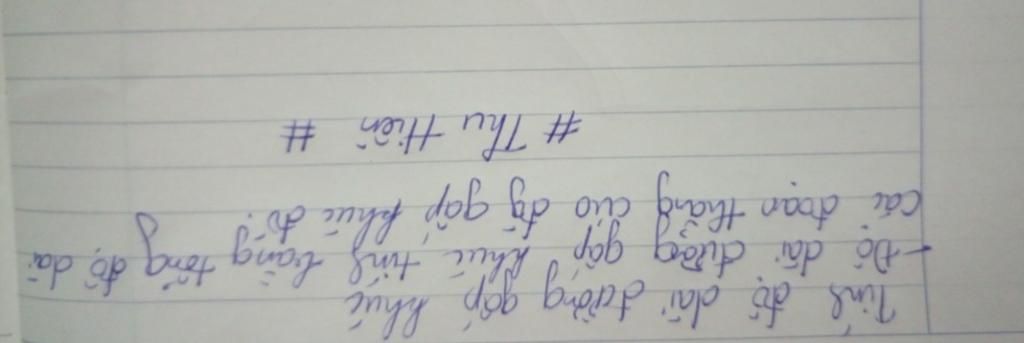 Tính độ dài đường gấp khúc
- Độ dài đường gấp khúc tính bằng tổng độ dài
các đoạn thẳng của đg gấp khúc đó.
# Thu Hiền #